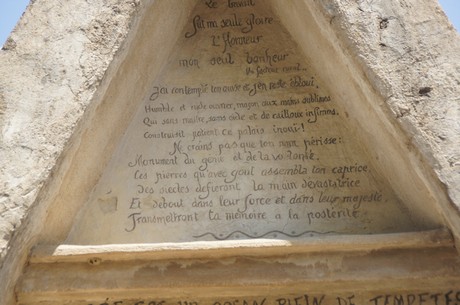 Le travail
fut ma seule gloire
L'Honneur
mon seul bonheur
J'ai contemplé ton œuvre et j'en reste ébloui,
Humble et rude ouvrier, maçon, aux mains sublimes
Qui sans maître, sans aide et de cailloux infimes,
Construisit patient ce palais inouï!
Ne crains pas que ton nom périsse:
Monument du génie et de la volonté,
Ces pierres qu'avec goût assembla ton caprice,
Des siècles défieront la main dévastatrice
Et debout dans leur force et dans leur majesté,
Transmettront ta mémoire à la postérité
UN OCÉAN PLEIN DE TEMPÊTES